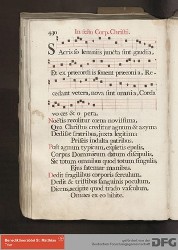 In festo Corp. Christi.
Sacris solemniis juncta sint gaudia,
Et ex præcordiis sonent præconia, Re-
cedant vetera, nova sint omnia, Corda
voces & o pera.
Noctis recolitur cœna novissima,
Qua Christus creditur agnum & azyma
Dedisse fratribus, juxta legitima
Priscis indulta patribus.
Post agnum typicum, expletis epulis,
Corpus Dominicum datum discipulis,
Sic totum omnibus quod totum singulis,
Ejus fatemur manibus.
Dedit fragilibus corporis ferculum,
Dedit & tristibus sanguinis poculum,
Dicens, accipite quod trado vasculum,
Omnes ex eo bibite.
DFG